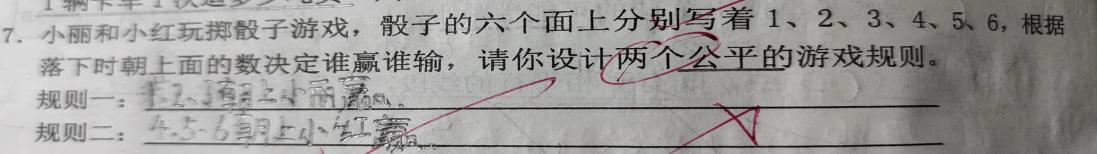 1辆卡车1次运多少吨货
7. 小丽和小红玩掷骰子游戏，骰子的六个面上分别写着 1、2、3、4、5、6，根据
落下时朝上面的数决定谁赢谁输，请你设计两个公平的游戏规则。
规则一：1.2.3朝上小丽赢。
规则二：4.5.6朝上小红赢。